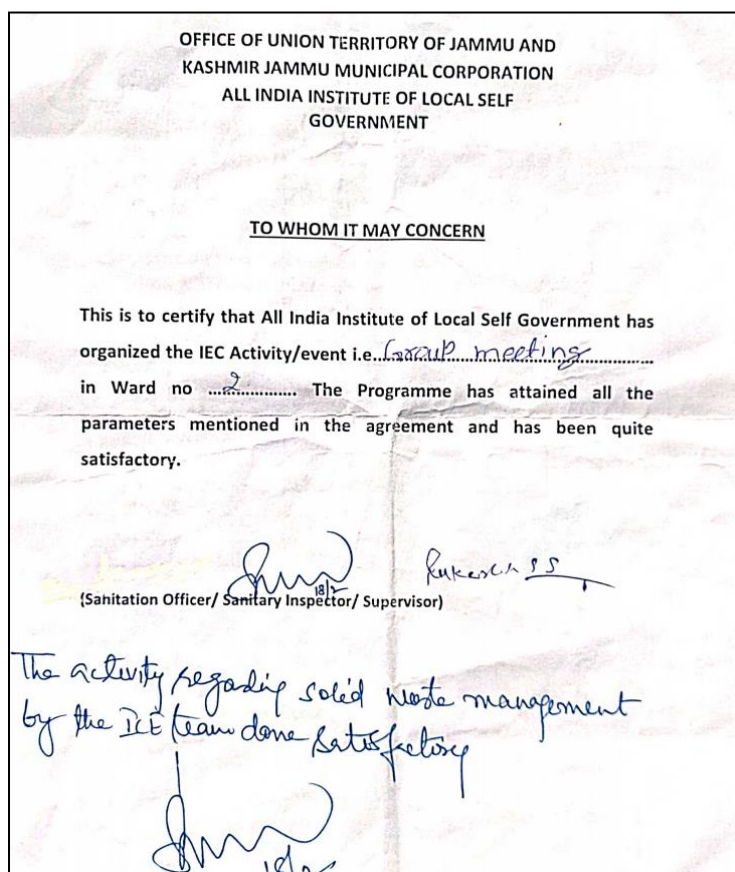 OFFICE OF UNION TERRITORY OF JAMMU AND
KASHMIR JAMMU MUNICIPAL CORPORATION
ALL INDIA INSTITUTE OF LOCAL SELF
GOVERNMENT
TO WHOM IT MAY CONCERN
This is to certify that All India Institute of Local Self Government has
organized the IEC Activity/event i.e..Group meeting..............
in Ward no ...2............. The Programme has attained all the
parameters mentioned in the agreement and has been quite
satisfactory.
18/2
SS
(Sanitation Officer/ Sanitary Inspector/ Supervisor)
The activity regarding solid waste management
by the ICE team done satisfactory